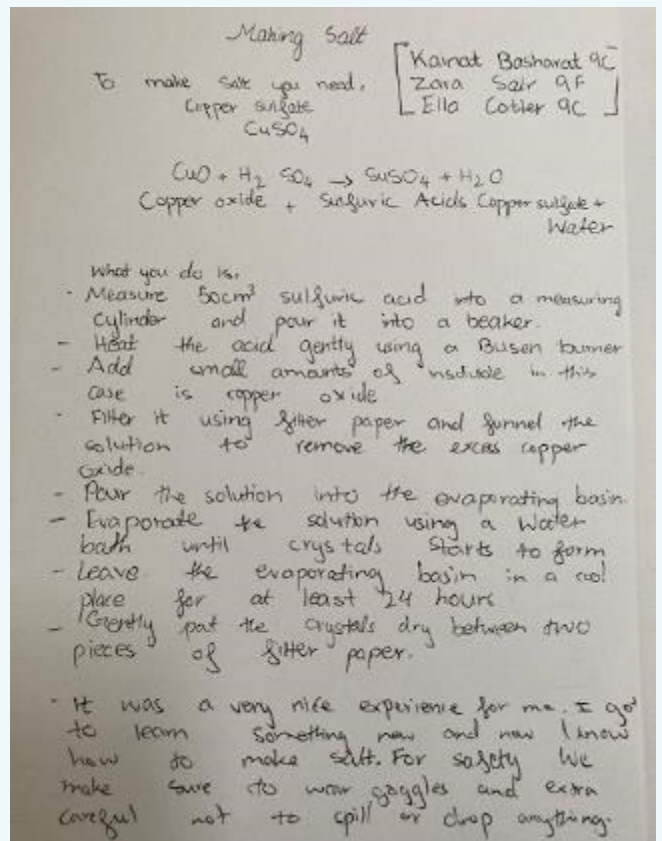 Making Salt
[Kainat Basharat 9C
Zara Sair 9F
Ella Cotler 9C]
To make salt you need.
Copper sulfate
CuSO4
CuO + H2 SO4 → SuSO4 + H2O
Copper oxide + Sulfuric Acids Copper sulfate +
Water
What you do is.
- Measure 50cm³ sulfuric acid into a measuring
Cylinder and pour it into a beaker.
- Heat the acid gently using a Busen burner
- Add small amounts of insoluble in this
case is copper oxide
- Filter it using filter paper and funnel the
solution to remove the excess copper
oxide.
- Pour the solution into the evaporating basin.
- Evaporate the solution using a Water
bath until crystals starts to form
- Leave the evaporating basin in a cool
place for at least 24 hours
- Gently pat the crystals dry between two
pieces of filter paper.
- It was a very nice experience for me. I got
to learn something new and now I know
how to make salt. For safety We
make sure to wear goggles and extra
careful not to spill or drop anything.